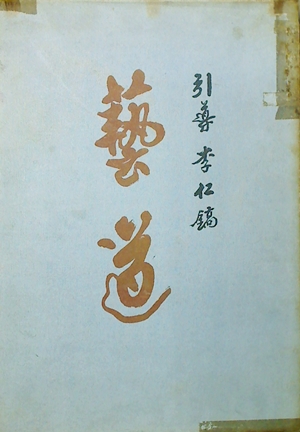 引導 李仁鎬
藝道